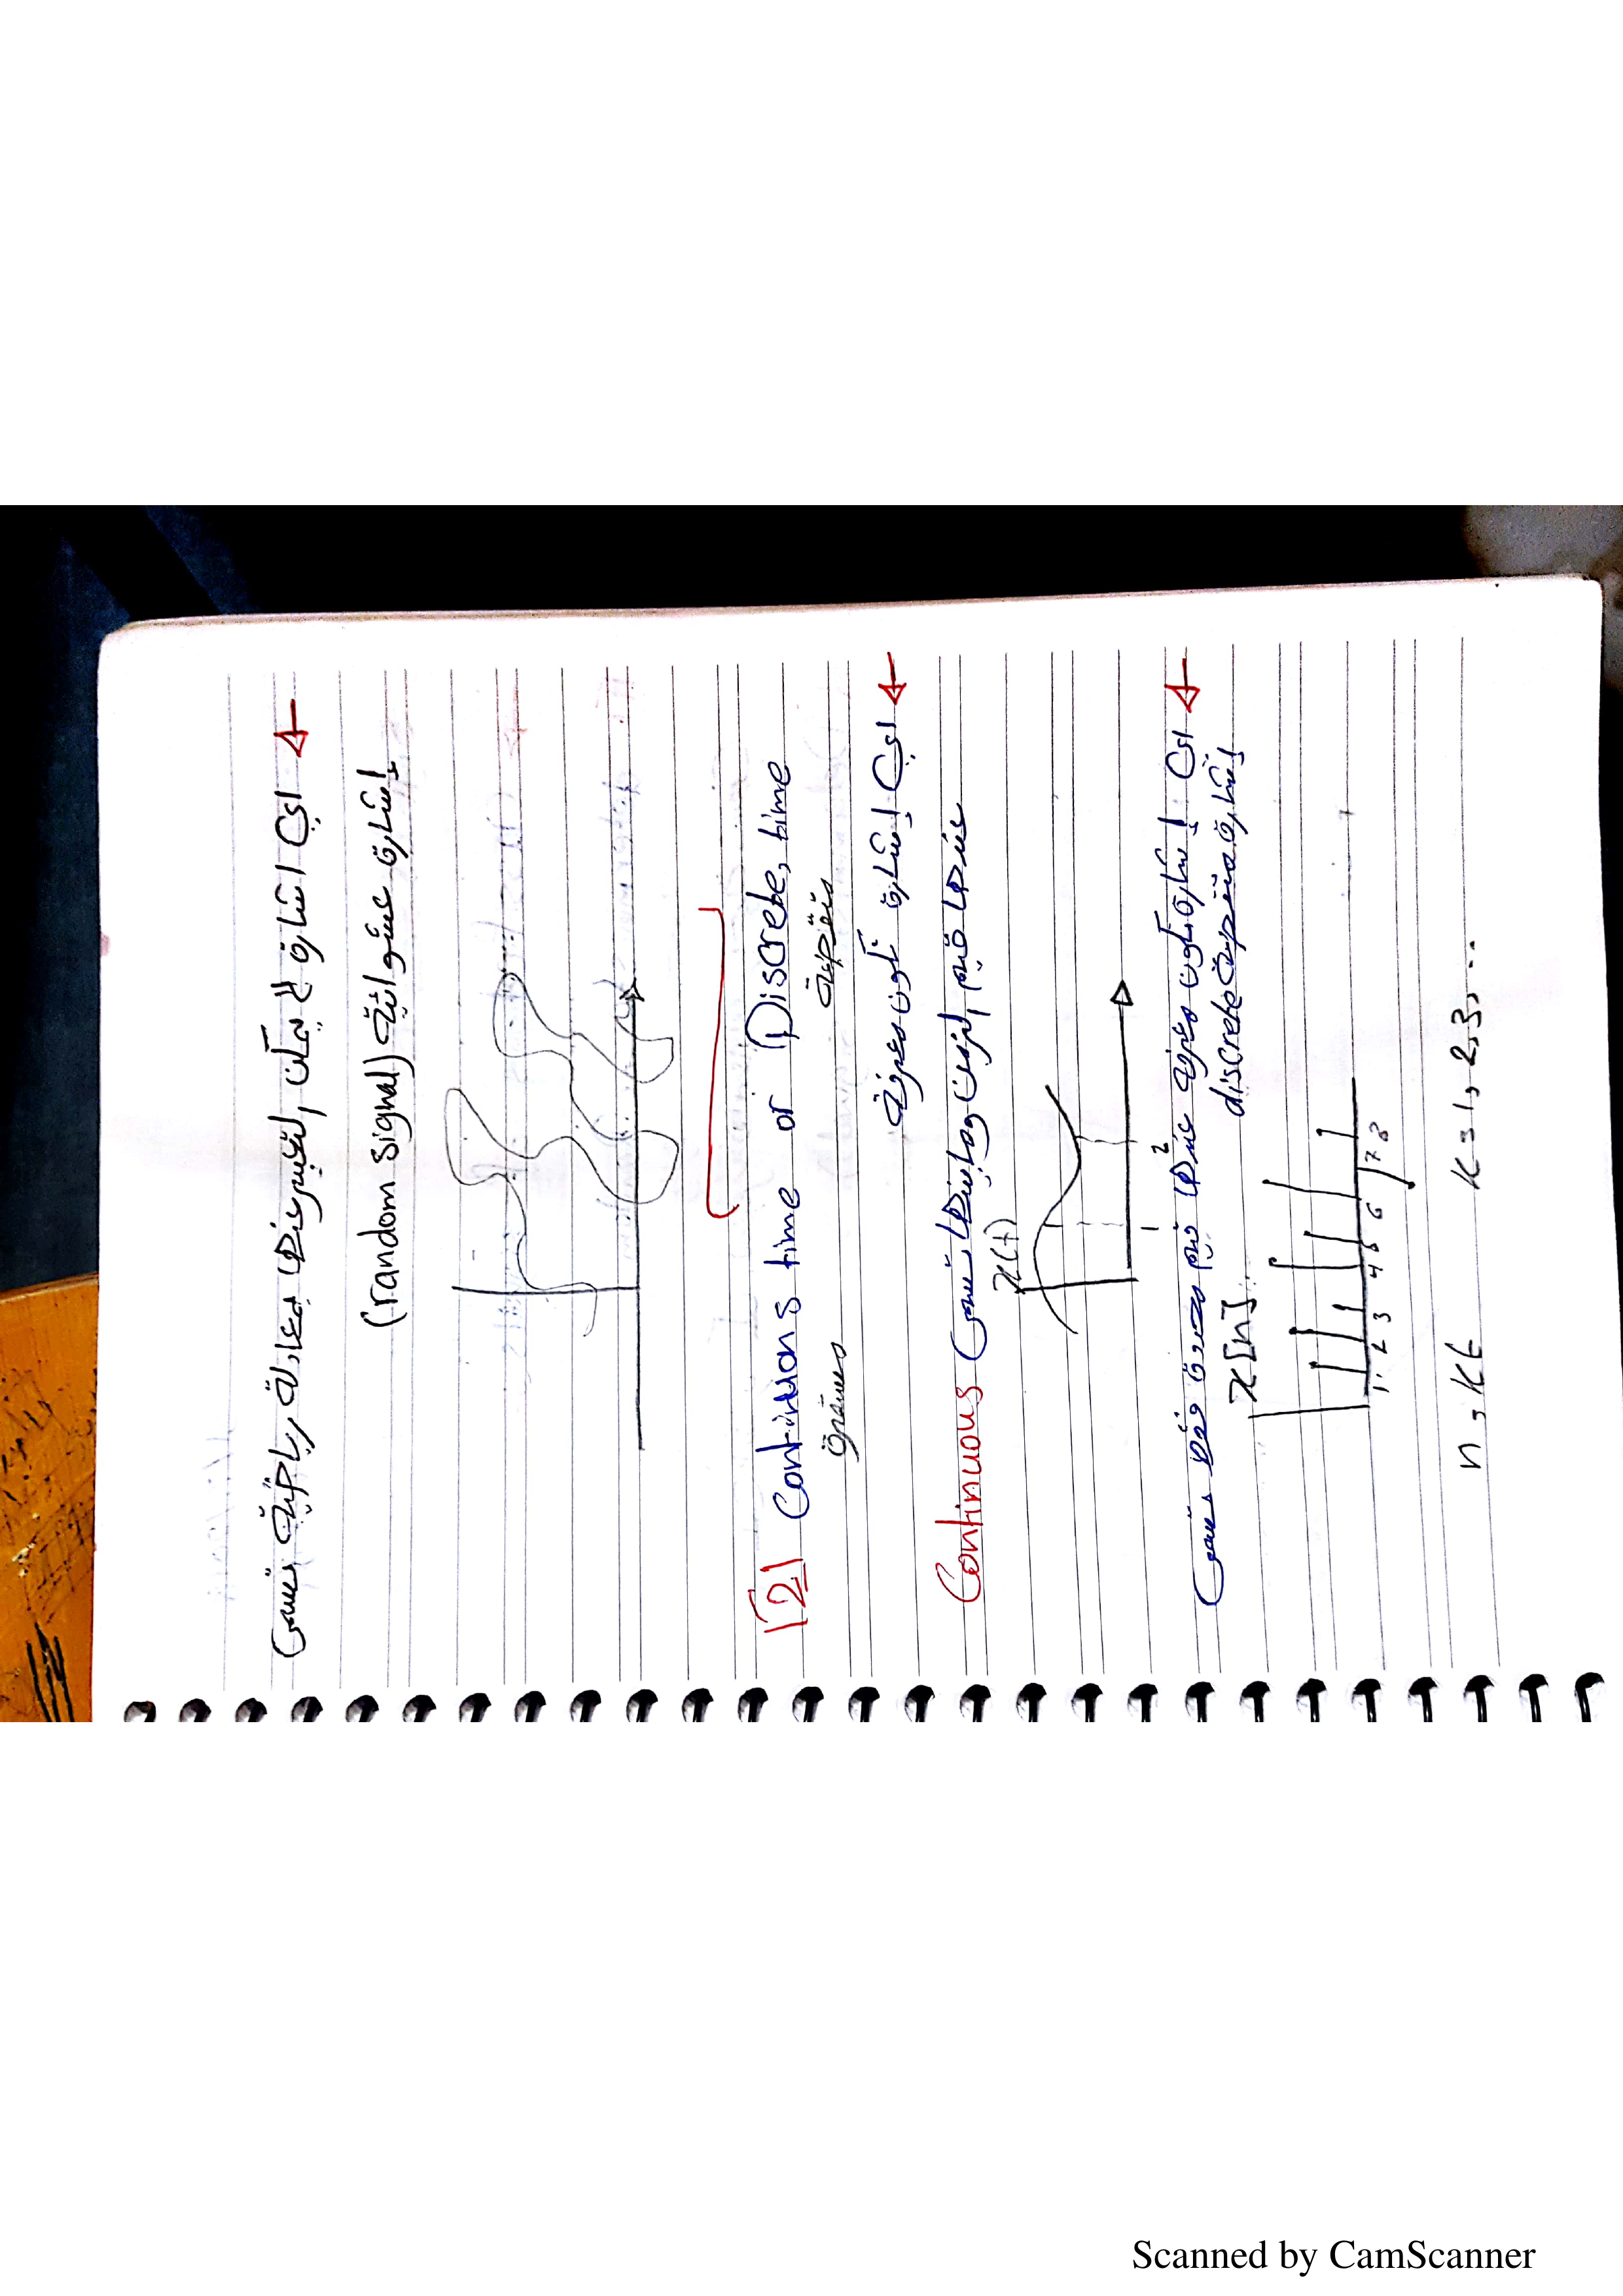 اي اشارة لا يمكن التعبير عنها بمعادلة رياضية تسمى
إشارة عشوائية (random signal)
[2] Continuons time or Discrete, time
مستمرة متقطعة
اي إشارة تكون معرفة
عندها قيم الزمن وما بينها تسمى Continuous
x(t)
1 2
اي إشارة تكون معرفة عند قيم محددة فقط تسمى
إشارة متقطعة discrete
x[n]
1 2 3 4 5 6 7 8
n, kt k=1, 2, 3, ...
Scanned by CamScanner